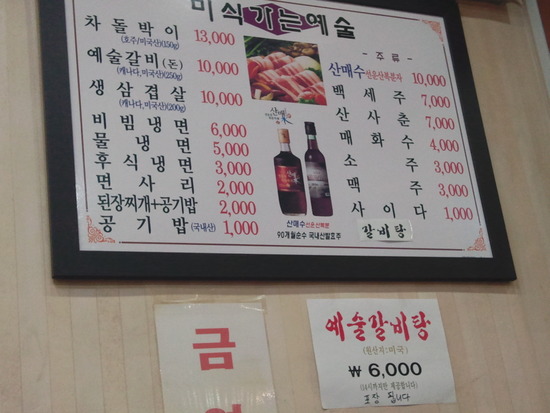 미식가는예술
차돌박이 13,000
(호주/미국산)(150g)
예술갈비(돈) 10,000
(캐나다,미국산)(250g)
생삼겹살 10,000
(캐나다,미국산)(200g)
비빔냉면 6,000
물냉면 5,000
후식냉면 3,000
면사리 2,000
된장찌개+공기밥 2,000
공기밥(국내산) 1,000
산매수선운산복분
90개월순수 국내산발효주
- 주류 -
산매수선운산복분자 10,000
백세주 7,000
산사춘 7,000
매화수 4,000
소주 3,000
맥주 3,000
사이다 1,000
갈비탕
금
예술갈비탕
(원산지:미국)
₩ 6,000
(14시까지만 제공합니다)
포장 됩니다